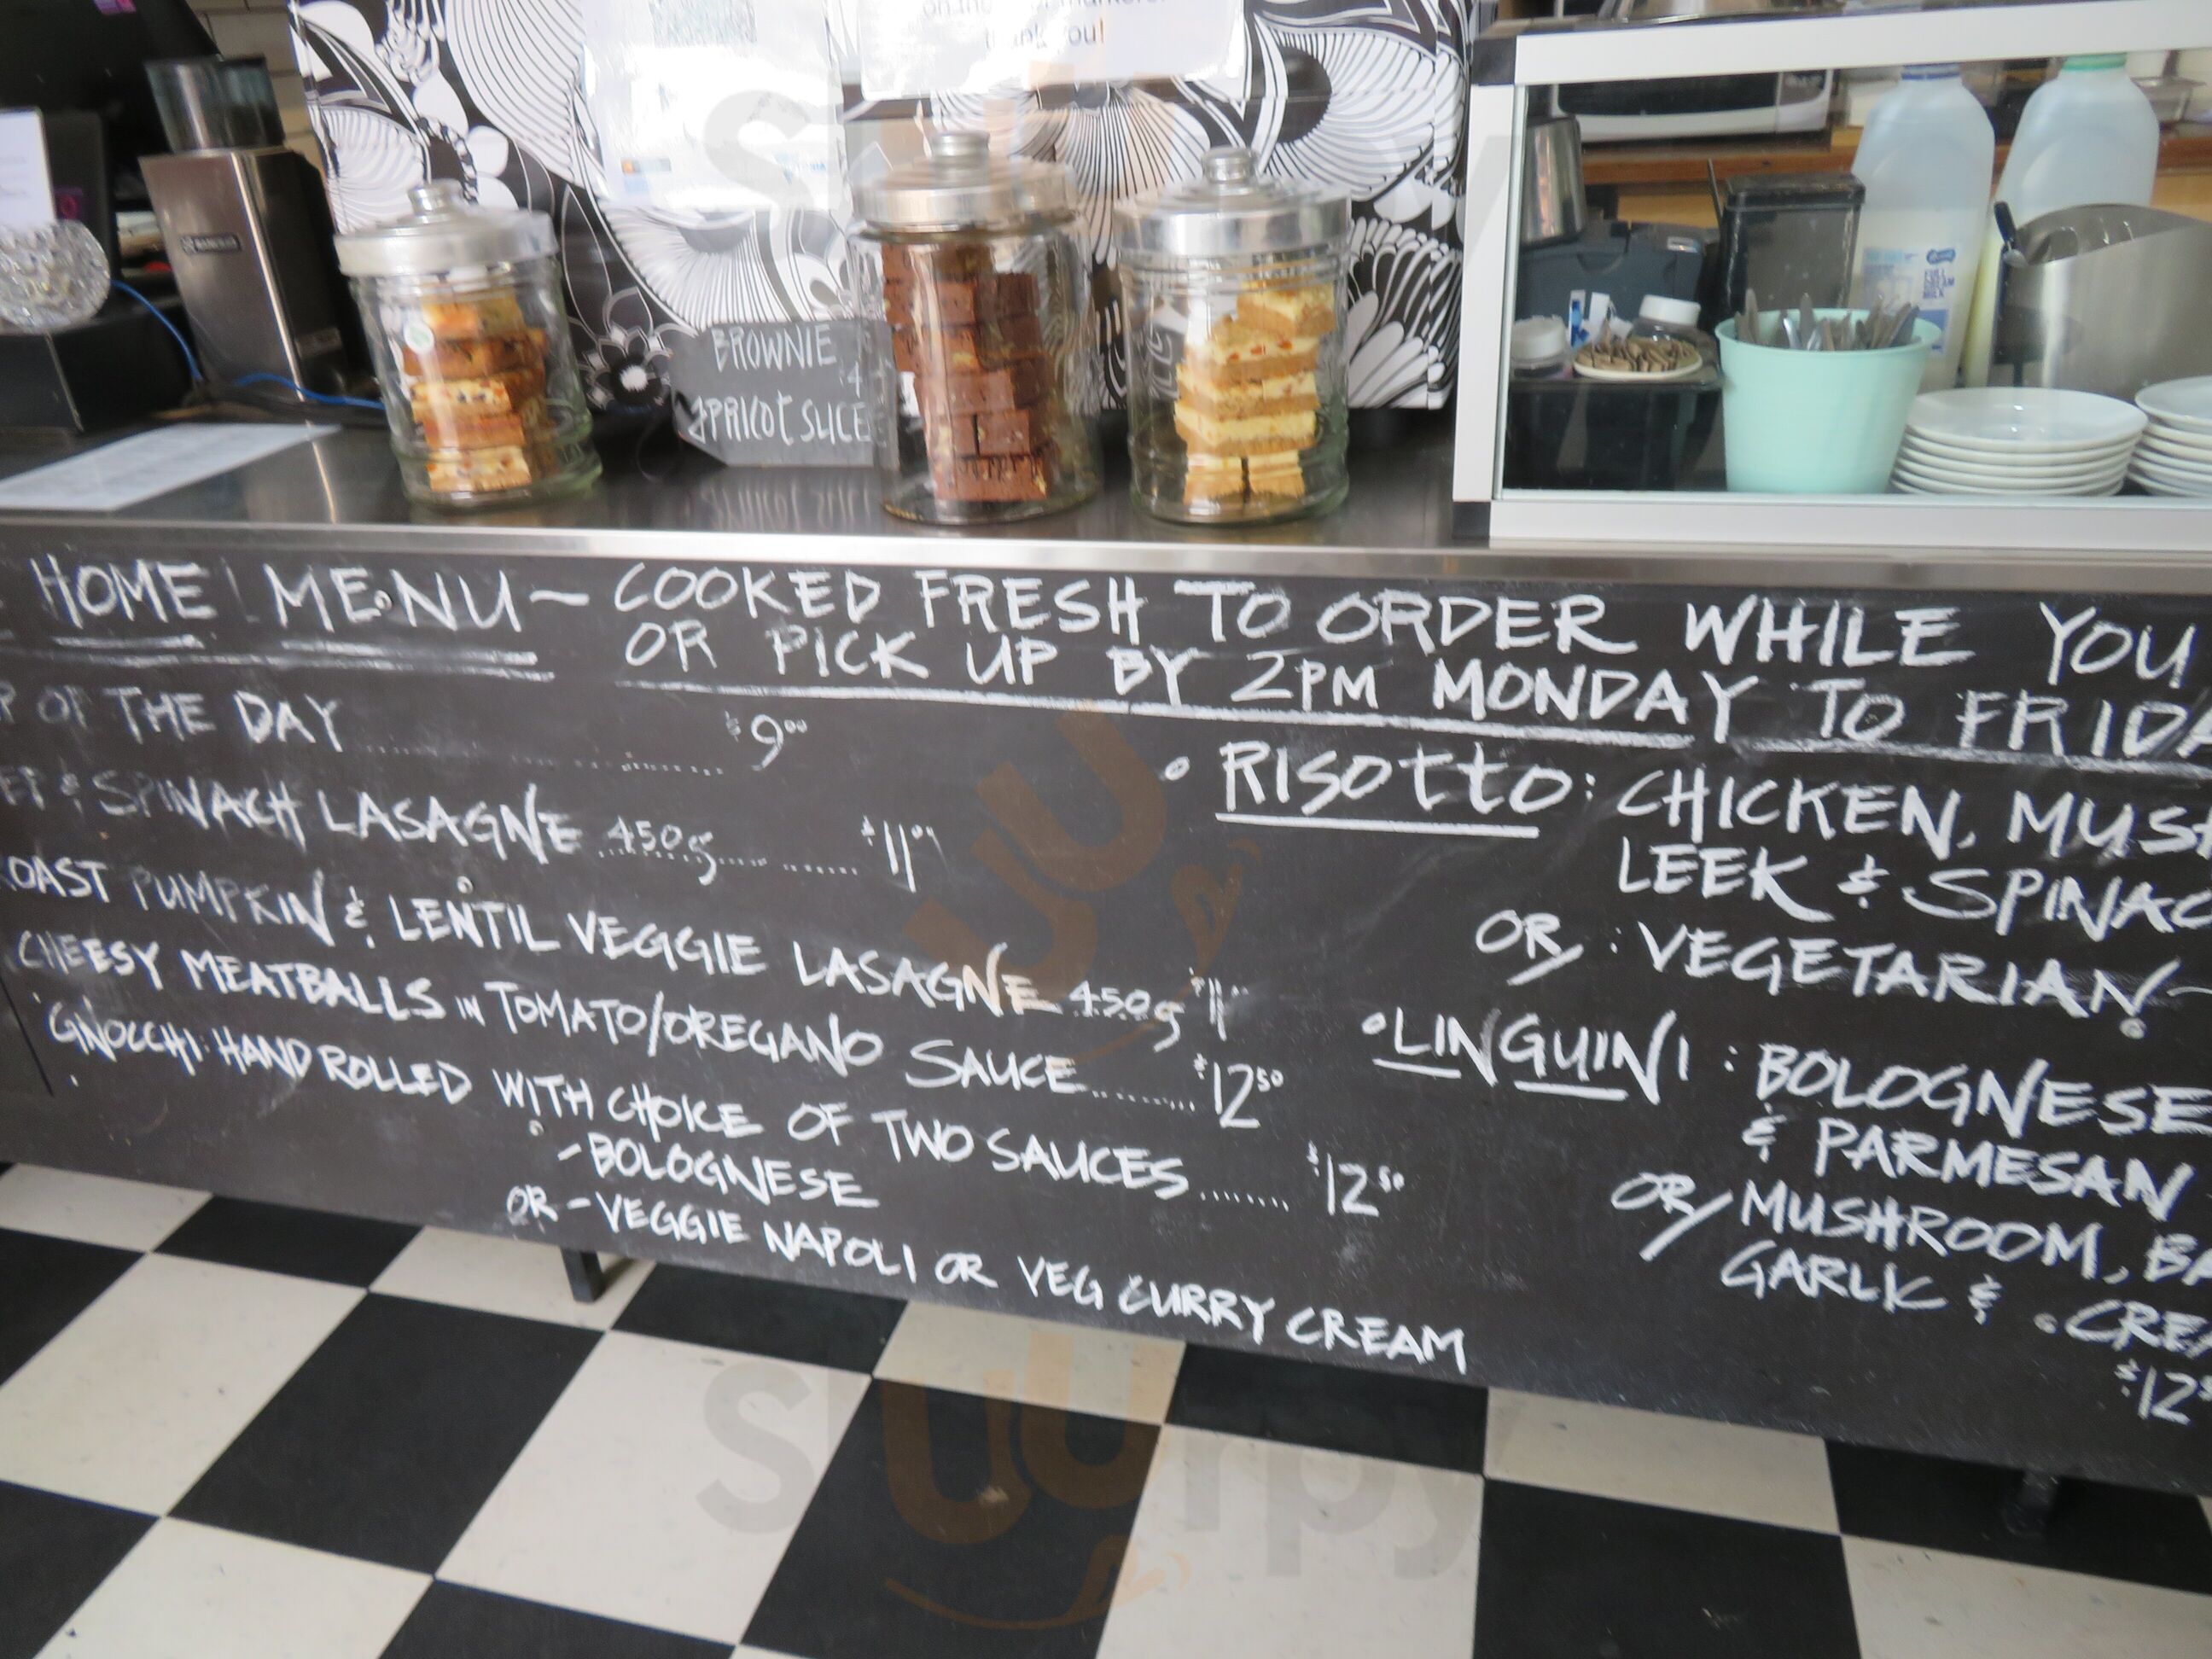 thank you!
BROWNIE
$4
APRICOT SLICE
FULL
CREAM
MILK
HOME MENU ~ COOKED FRESH TO ORDER WHILE YOU
OR PICK UP BY 2PM MONDAY TO FRIDA
P OF THE DAY .............. $9.00
& SPINACH LASAGNE 450g ........ $11.00
OAST PUMPKIN & LENTIL VEGGIE LASAGNE 450g $11.00
CHEESY MEATBALLS IN TOMATO/OREGANO SAUCE ........ $12.50
GNOCCHI: HAND ROLLED WITH CHOICE OF TWO SAUCES ....... $12.50
- BOLOGNESE
OR - VEGGIE NAPOLI OR VEG CURRY CREAM
• RISOTTO: CHICKEN, MUSH
LEEK & SPINAC
OR : VEGETARIAN
• LINGUINI : BOLOGNESE
& PARMESAN
OR MUSHROOM, BA
GARLIC & CREA
$12.5
sluurpy
sluurpy